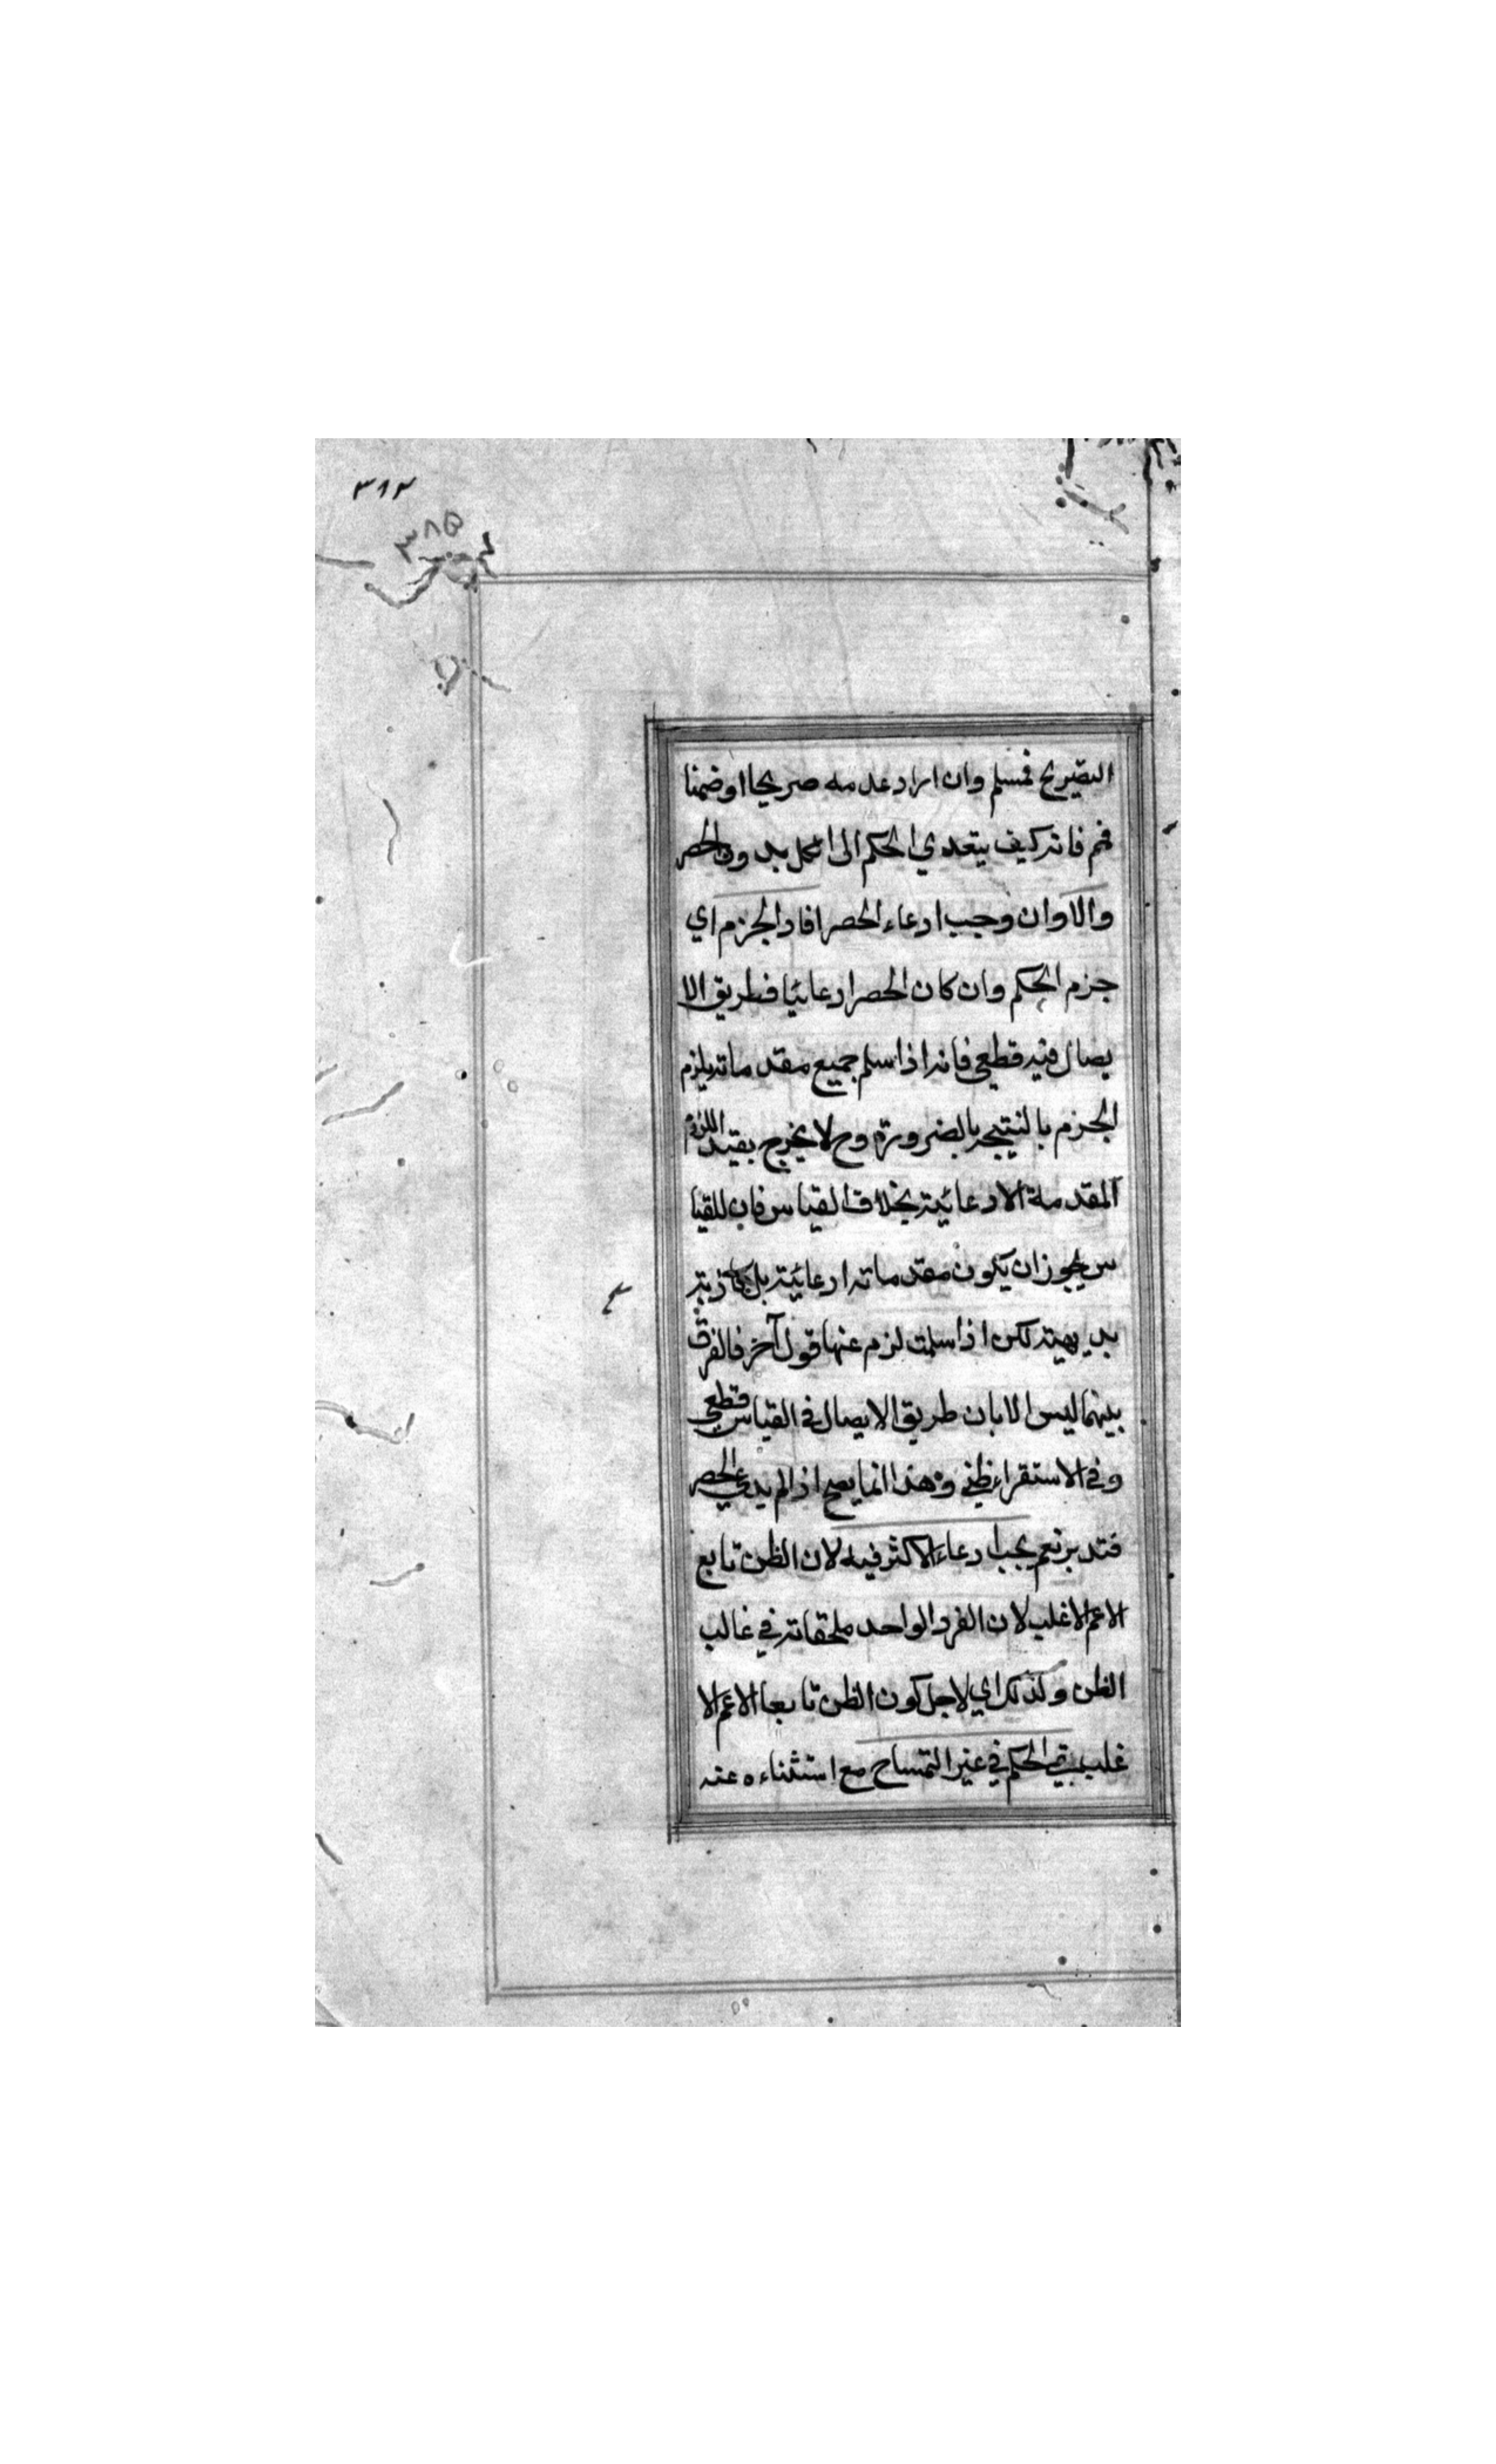 ٣٨٢
٣٨٥
التصريح فمسلم وان اراد عدمه صريحا او ضمنا
فم فانه كيف يتعدي الحكم الى الكل بدون الحصر
والا وان وجب ادعاء الحصر افاد الجزم اي
جزم الحكم وان كان الحصر ادعائيا فطريق الا
يصال فيه قطعي فانه اذا سلم جميع مقدماته يلزم
الجزم بالنتيجه بالضرورة وح لا يخرج بقيد اللزوم
المقدمة الادعائية بخلاف القياس فان للقيا
س يجوز ان يكون مقدماته ادعائية بل كاذبة
بديهية لكن اذا سلمت لزم عنها قول آخر فالفرق
بينهما ليس الا بان طريق الايصال في القياس قطعي
وفي الاستقراء ظني وهذا انما يصح اذا لم يدعي الحصر
فتدبر نعم يجب ادعاء الاكثر فيه لان الظن تابع
الاعم الاغلب لان الفرد الواحد ملحقاته في غالب
الظن ولذلك اي لاجل كون الظن تابعا الاعم الا
غلب بقي الحكم في غير التمساح مع استثناءه عنه